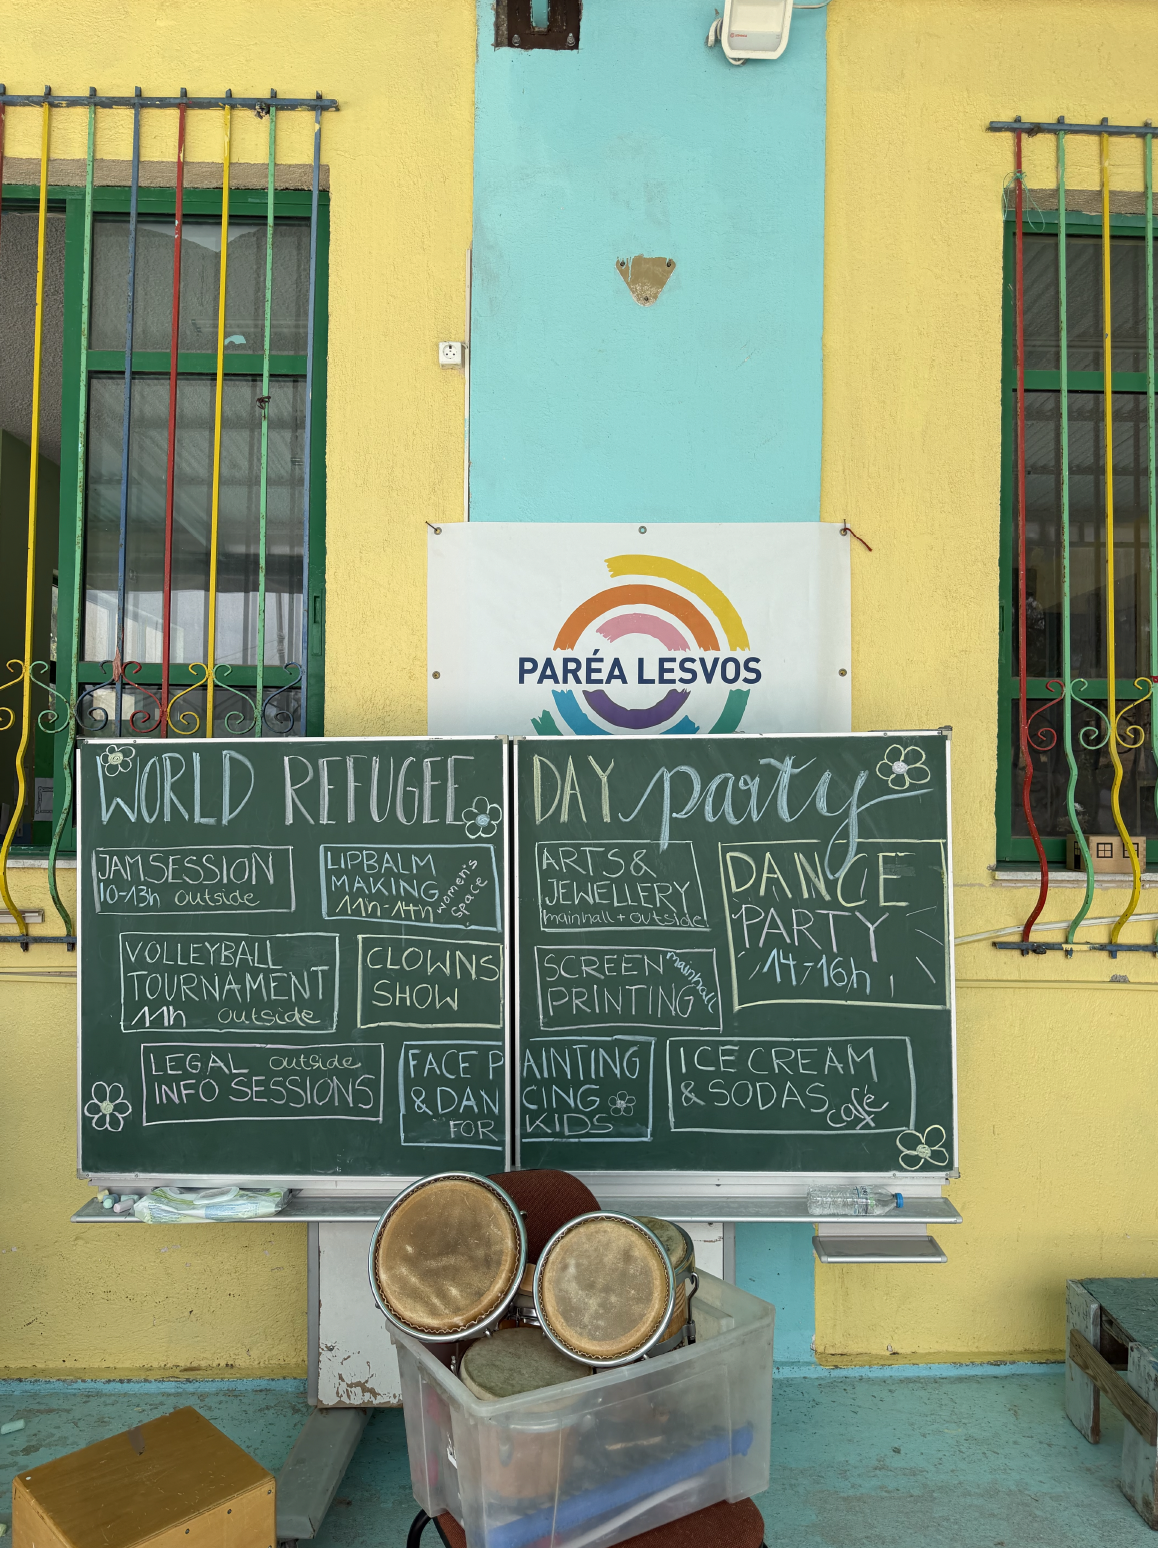 PARÉA LESVOS
WORLD REFUGEE DAY party
JAMSESSION
10-13h outside
LIPBALM
MAKING
11h-14h
women's
space
VOLLEYBALL
TOURNAMENT
11h outside
CLOWNS
SHOW
LEGAL outside
INFO SESSIONS
FACE PAINTING
& DANCING
FOR KIDS
ARTS &
JEWELLERY
mainhall + outside
SCREEN
PRINTING
mainhall
DANCE
PARTY
14-16h
ICE CREAM
& SODAS
café